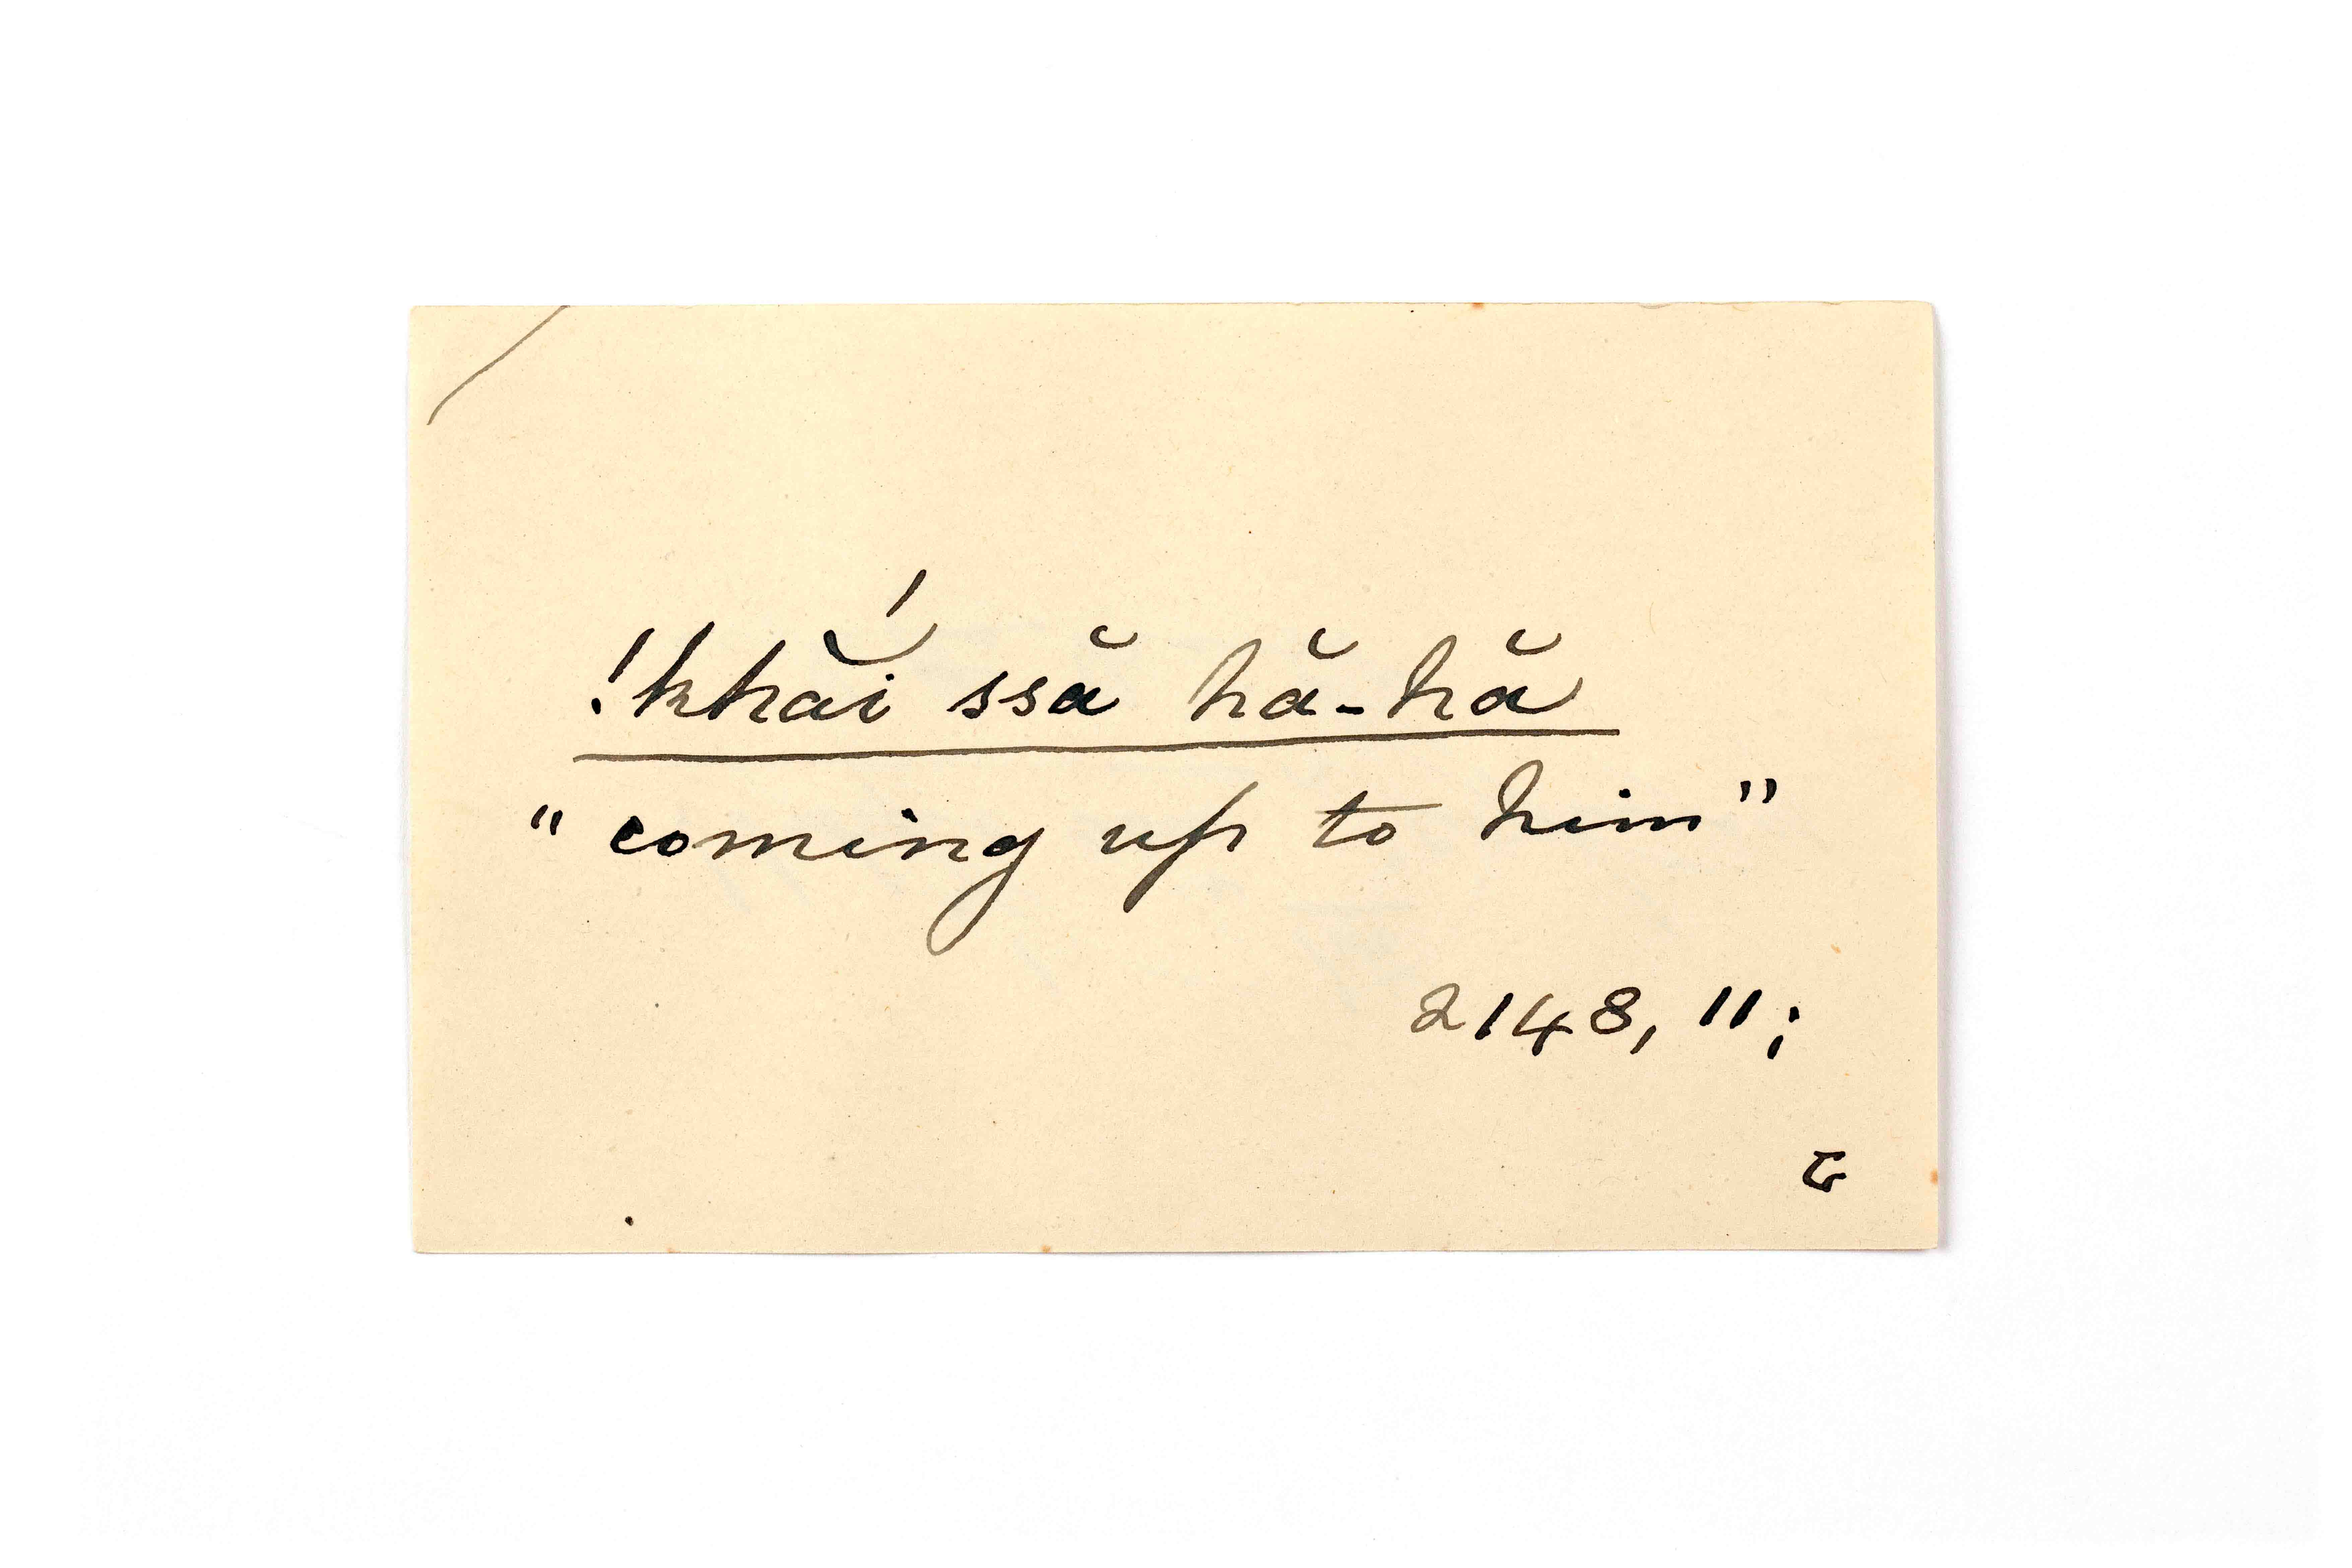 !khắi ssă hă-hă
"coming up to him"
2148, 11;
G